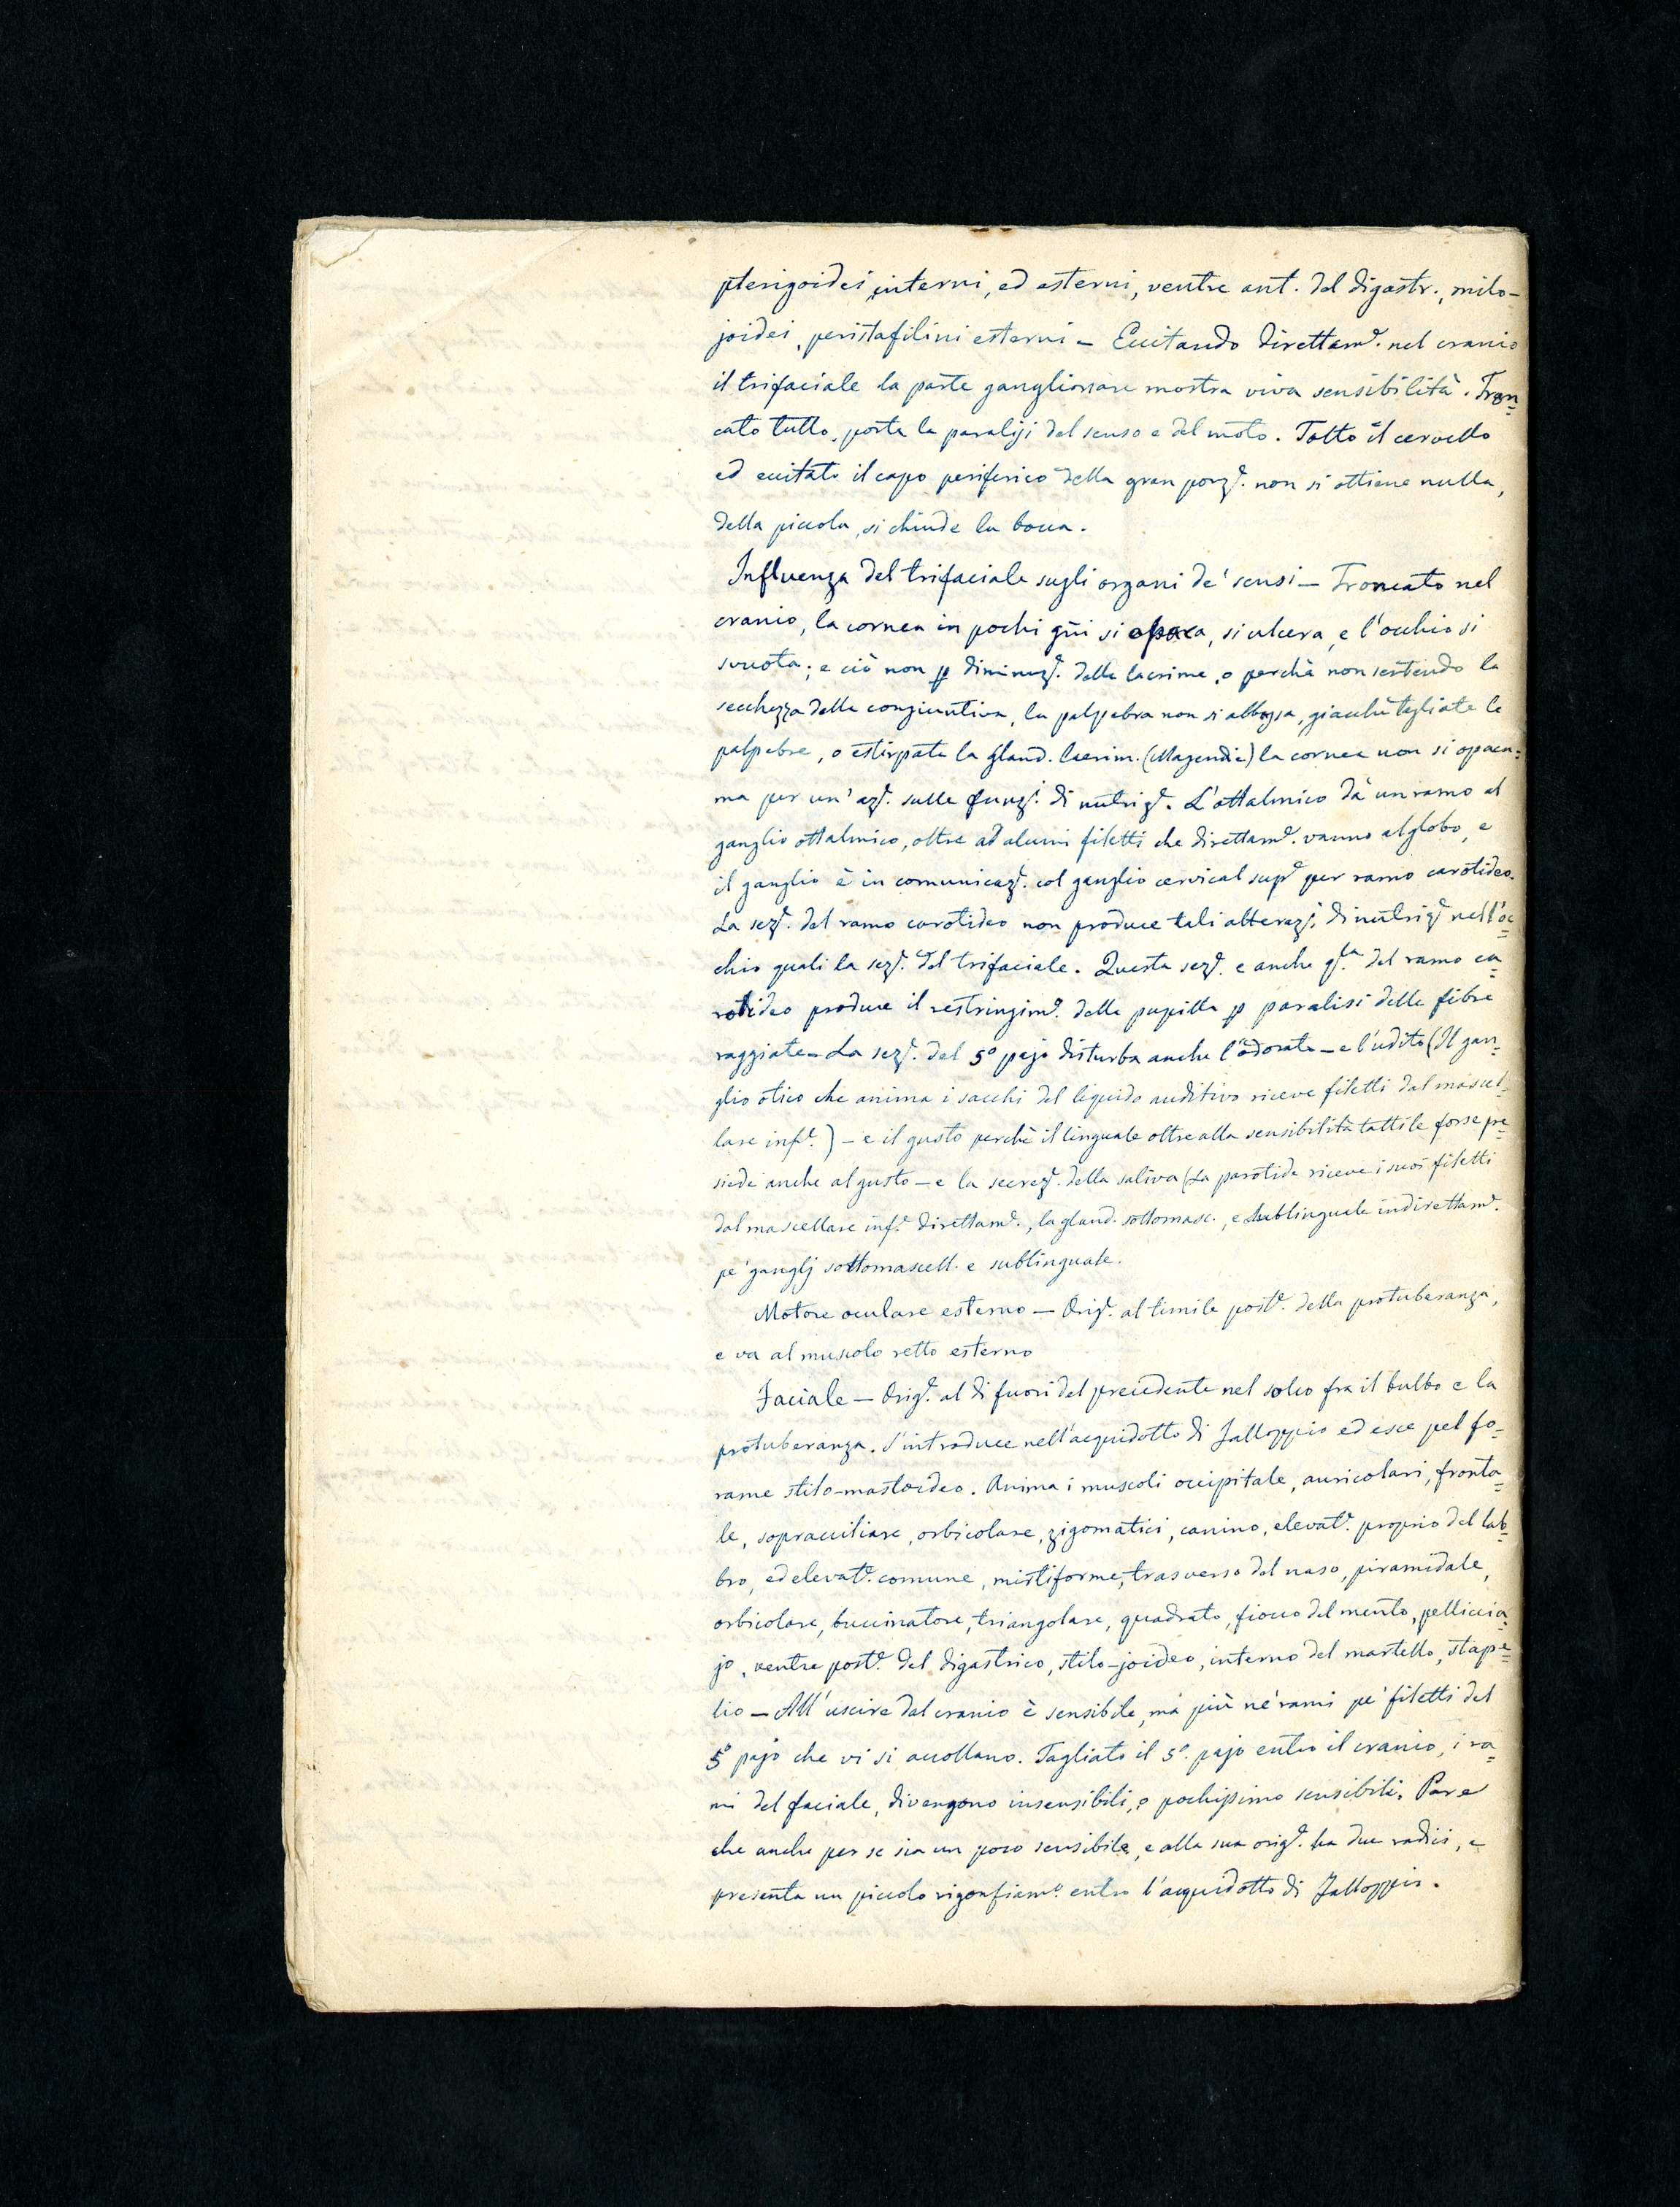 pterigoidei interni, ed esterni, ventre ant. del digastr., milo-
joidei, peristafilini esterni – Eccitando direttamᵉ. nel cranio
il trifaciale la parte ganglionare mostra viva sensibilità. Tron=
cato tutto, porta la paralisi del senso e del moto. Tolto il cervello
ed eccitato il capo periferico della gran porzᵉ. non si ottiene nulla,
della piccola, si chiude la bocca.
Influenza del trifaciale sugli organi de' sensi – Troncato nel
cranio, la cornea in pochi gni si opaca, si ulcera, e l'occhio si
svuota; e ciò non p diminuzᵉ. delle lacrime, o perchè non sentendo la
secchezza della congiuntiva, la palpebra non si abbassa, giacchè tagliate le
palpebre, o estirpata la gland. lacrim. (Magendie) la cornea non si opaca:
ma per un' azᵉ. sulle funzⁱ. di nutrizᵉ. L'ottalmico dà un ramo al
ganglio ottalmico, oltre ad alcuni filetti che direttamᵉ. vanno al globo, e
il ganglio è in comunicazᵉ. col ganglio cervical supᵉ per ramo carotideo.
La sezᵉ. del ramo carotideo non produce tali alterazⁱ. di nutrizᵉ nell'oc=
chio quali la sezᵉ. del trifaciale. Questa sezᵉ. e anche qˡᵃ. del ramo ca=
rotideo produce il restringimᵒ. della pupilla p paralisi delle fibre
raggiate – La sezᵉ. del 5º pajo disturba anche l'odorato – e l'udito (Il gan=
glio otico che anima i sacchi del liquido auditivo riceve filetti dal mascel=
lare infᵉ.) – e il gusto perchè il linguale oltre alla sensibilità tattile forse pre=
siede anche al gusto – e la secrezᵉ. della saliva (La parotide riceve i suoi filetti
dal mascellare infᵉ. direttamᵉ., la gland. sottomasc., e sublinguale indirettamᵉ.
pe' ganglj sottomascell. e sublinguale.
Motore oculare esterno – Origᵉ. al limite postᵉ. della protuberanza,
e va al muscolo retto esterno
Faciale – Origᵉ. al di fuori del precedente nel solco fra il bulbo e la
protuberanza. S'introduce nell'acquidotto di Falloppio ed esce pel fo=
rame stilo-mastoideo. Anima i muscoli occipitale, auricolari, fronta=
le, sopracciliare, orbicolare, zigomatici, canino, elevatᵉ. proprio del lab=
bro, ed elevatᵉ. comune, mirtiforme, trasverso del naso, piramidale,
orbicolare, buccinatore, triangolare, quadrato, fiocco del mento, pelliccia=
jo, ventre postᵉ. del digastrico, stilo-joideo, interno del martello, stape=
lio – All'uscire dal cranio è sensibile, ma più ne' rami pe' filetti del
5º pajo che vi si accollano. Tagliato il 5º. pajo entro il cranio, i ra=
mi del faciale, divengono insensibili, o pochissimo sensibili. Pare
che anche per se sia un poco sensibile, e alla sua origᵉ. ha due radici, e
presenta un piccolo rigonfiamᵒ. entro l'acquidotto di Falloppio.